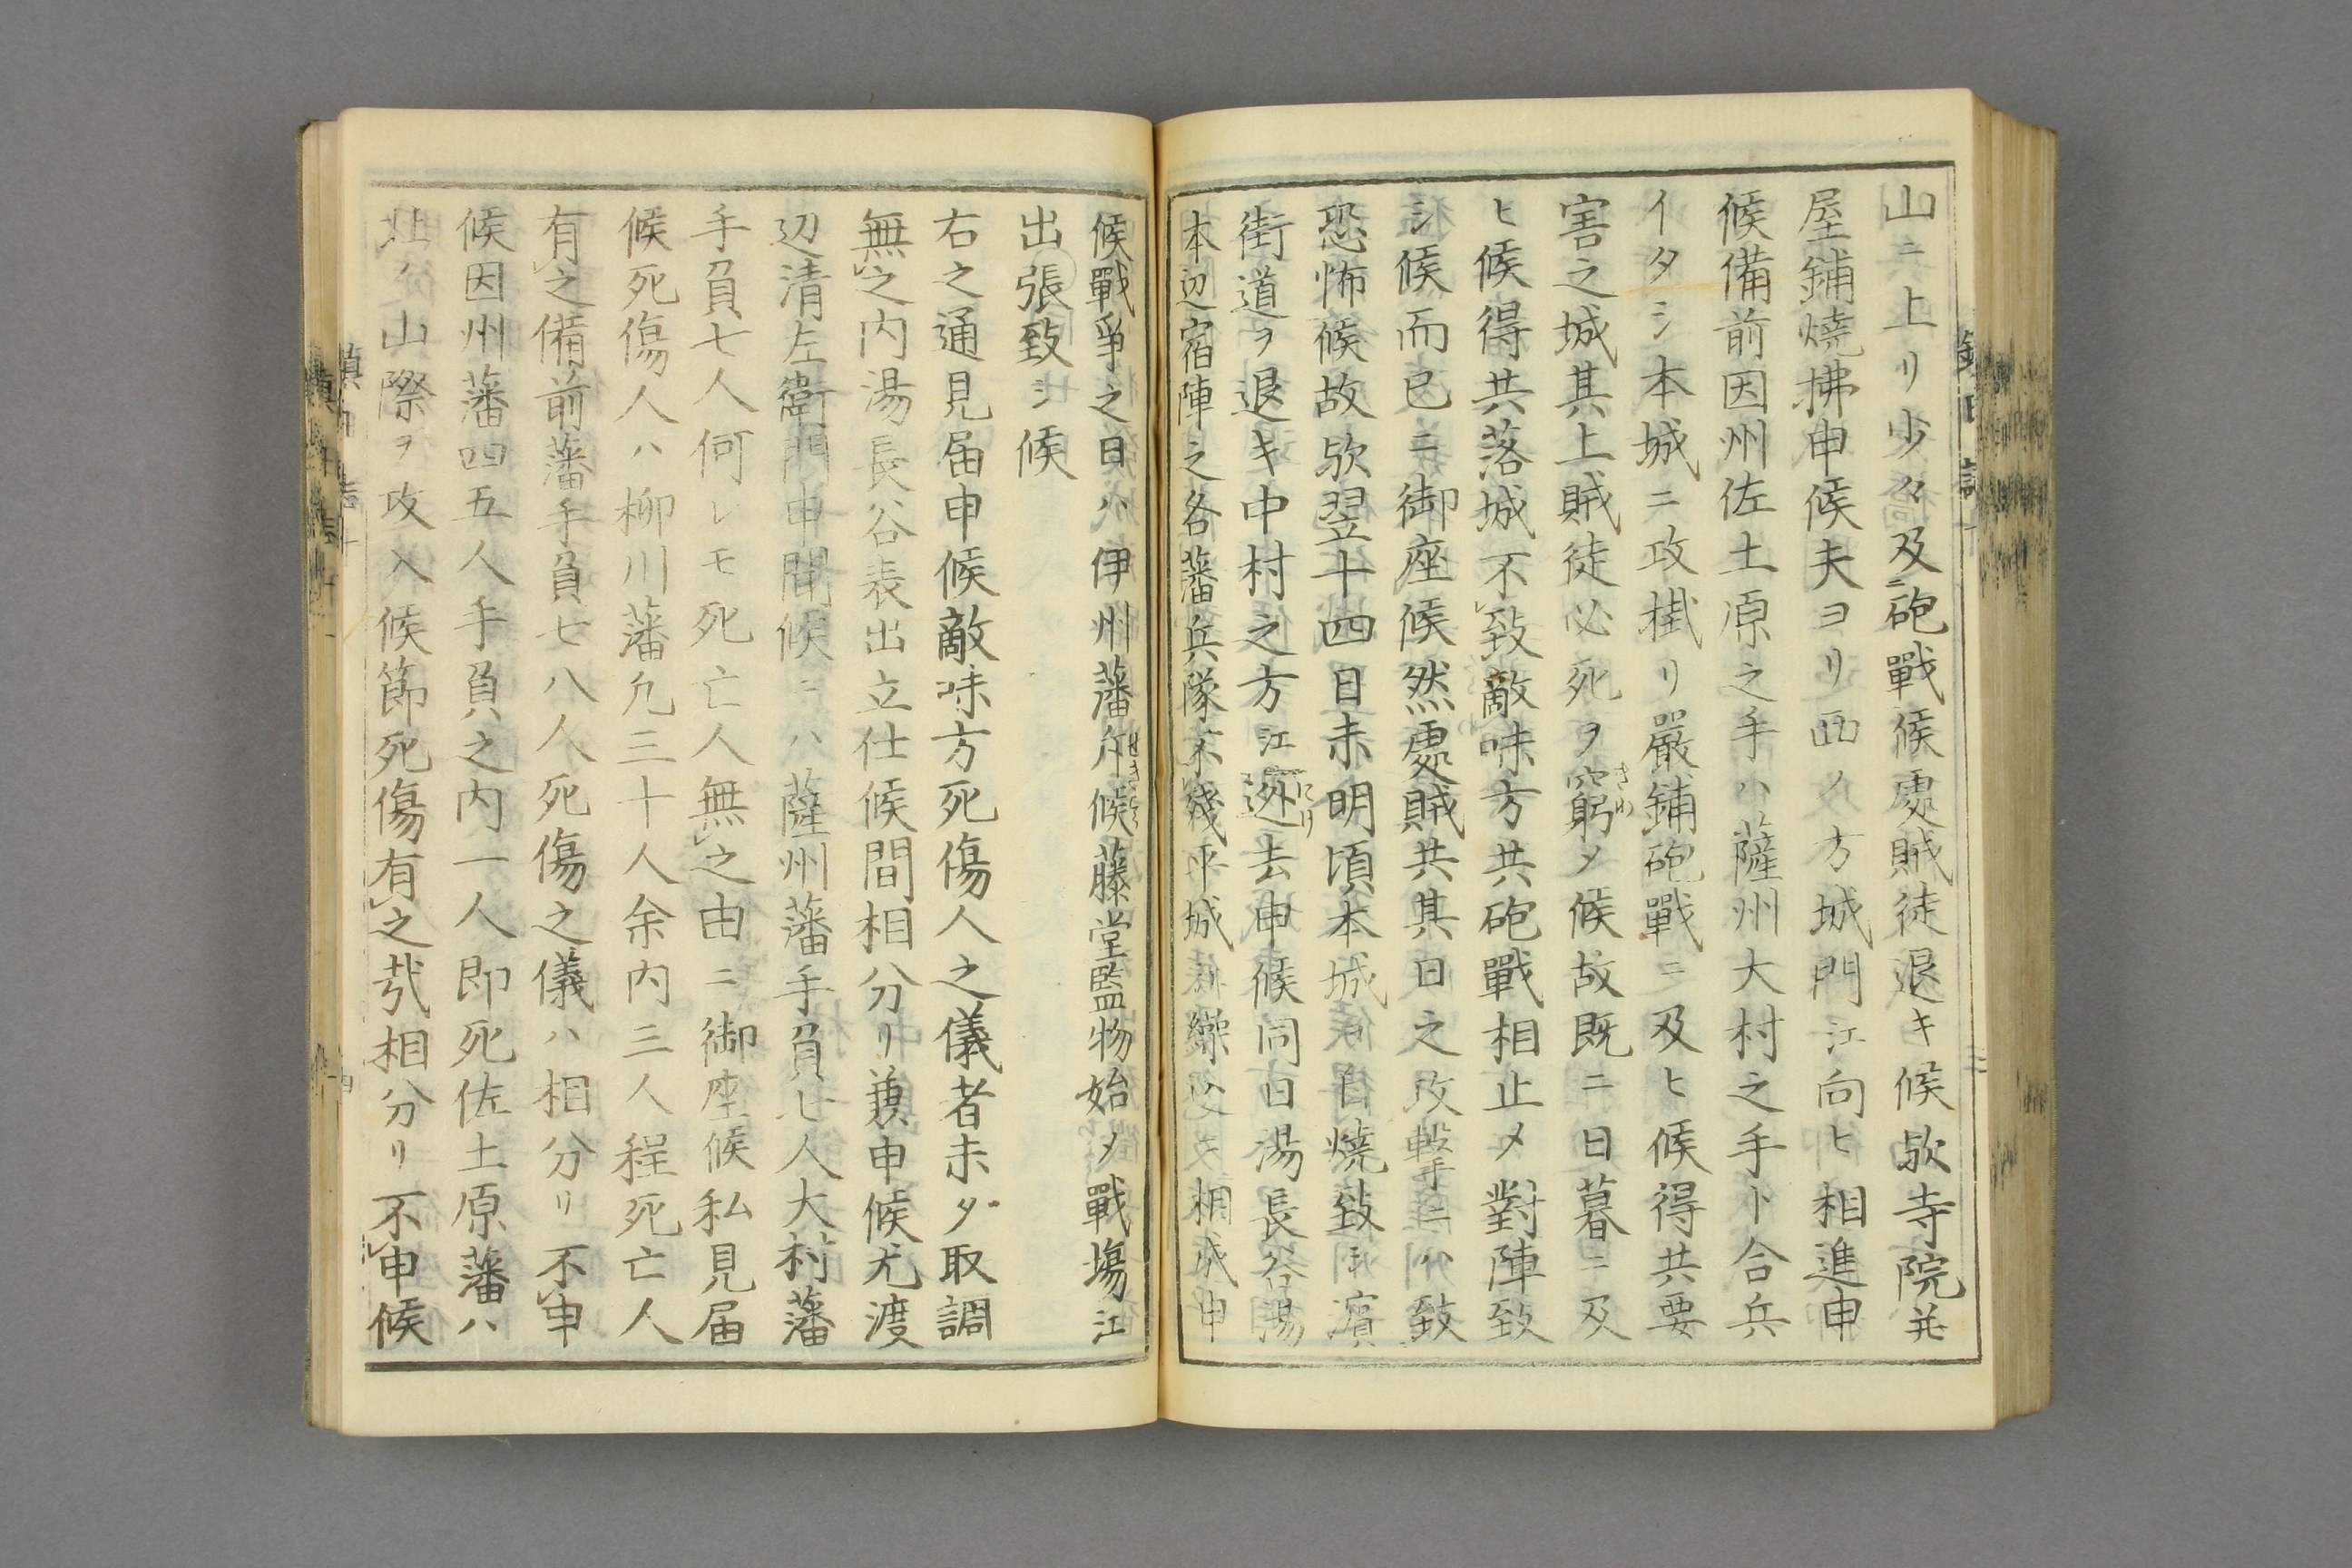 山ニ上リ少々及ニ砲戰候處賊徒退キ候欤寺院并
屋鋪燒拂申候夫ヨリ西ノ方城門江向ヒ相進申
候備前因州佐土原之手ハ薩州大村之手ト合兵
イタシ本城ニ攻掛リ嚴鋪砲戰ニ及ヒ候得共要
害之城其上賊徒必死ヲ窮メ候故既ニ日暮ニ及
ヒ候得共落城不致敵味方共砲戰相止メ對陣致
シ候而已ニ御座候然處賊共其日之攻擊手ニハ致
恐怖候故欤翌十四日未明頃本城ヲ自燒致シ濱
街道ヲ退キ中村之方江迯去申候同日湯長谷湯
本辺宿陣之各藩兵隊不殘平城
候戰爭之日ハ伊州藩斥候藤堂監物始メ戰塲江
出張致シ候
右之通見届申候敵味方死傷人之儀者未ダ取調
無之内湯長谷表出立仕候間相分リ兼申候尤渡
辺清左衞門申聞候ニハ薩州藩手負七人大村藩
手負七人何レモ死亡人無之由ニ御座候私見届
候死傷人ハ柳川藩九三十人余内三人程死亡人
有之備前藩手負七八人死傷之儀ハ相分リ不申
候因州藩四五人手負之内一人即死佐土原藩ハ
北ノ山際ヲ攻入候節死傷有之哉相分リ不申候